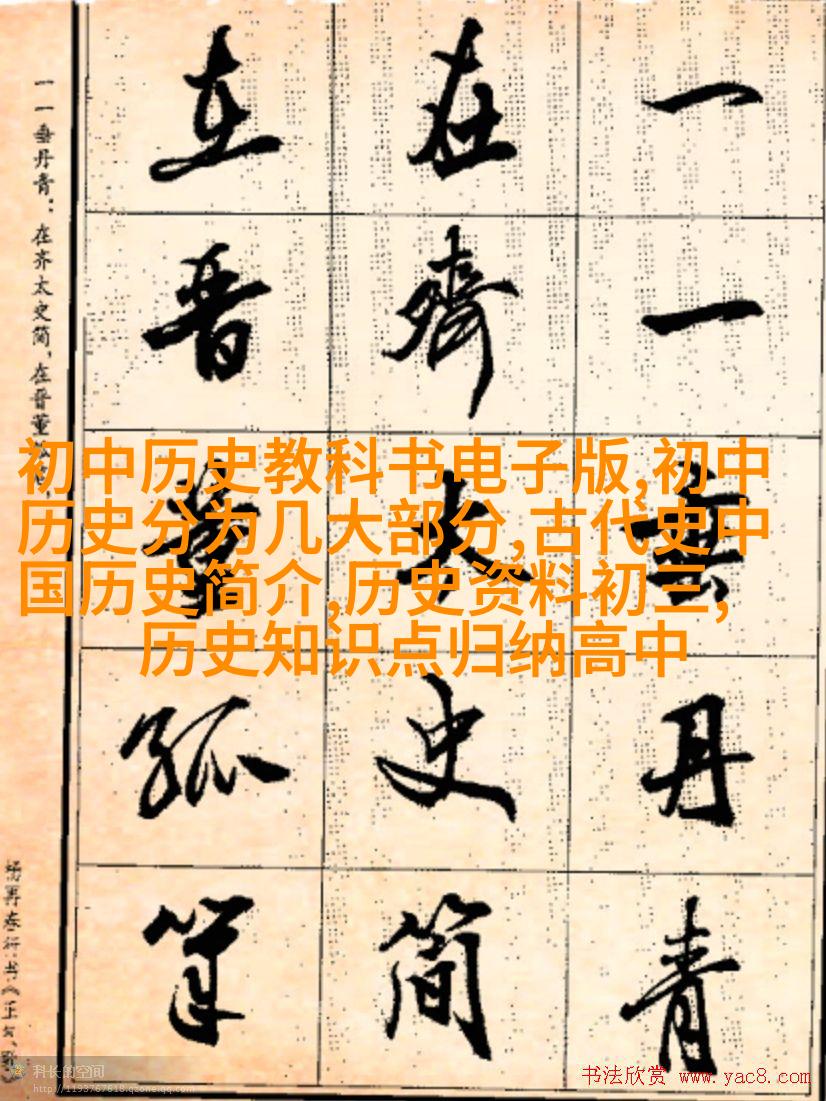 一一垂丹青
在齐太史简
在晋董狐笔
一一垂丹青：在齐太史简，在晋董狐笔，
初中历史教科书电子版,初中
历史分为几大部分,古代史中
国历史简介,历史资料初三,
历史知识点归纳高中
科长的空间
http://1193767618.qzone.qq.com
书法欣赏 www.yac8.com